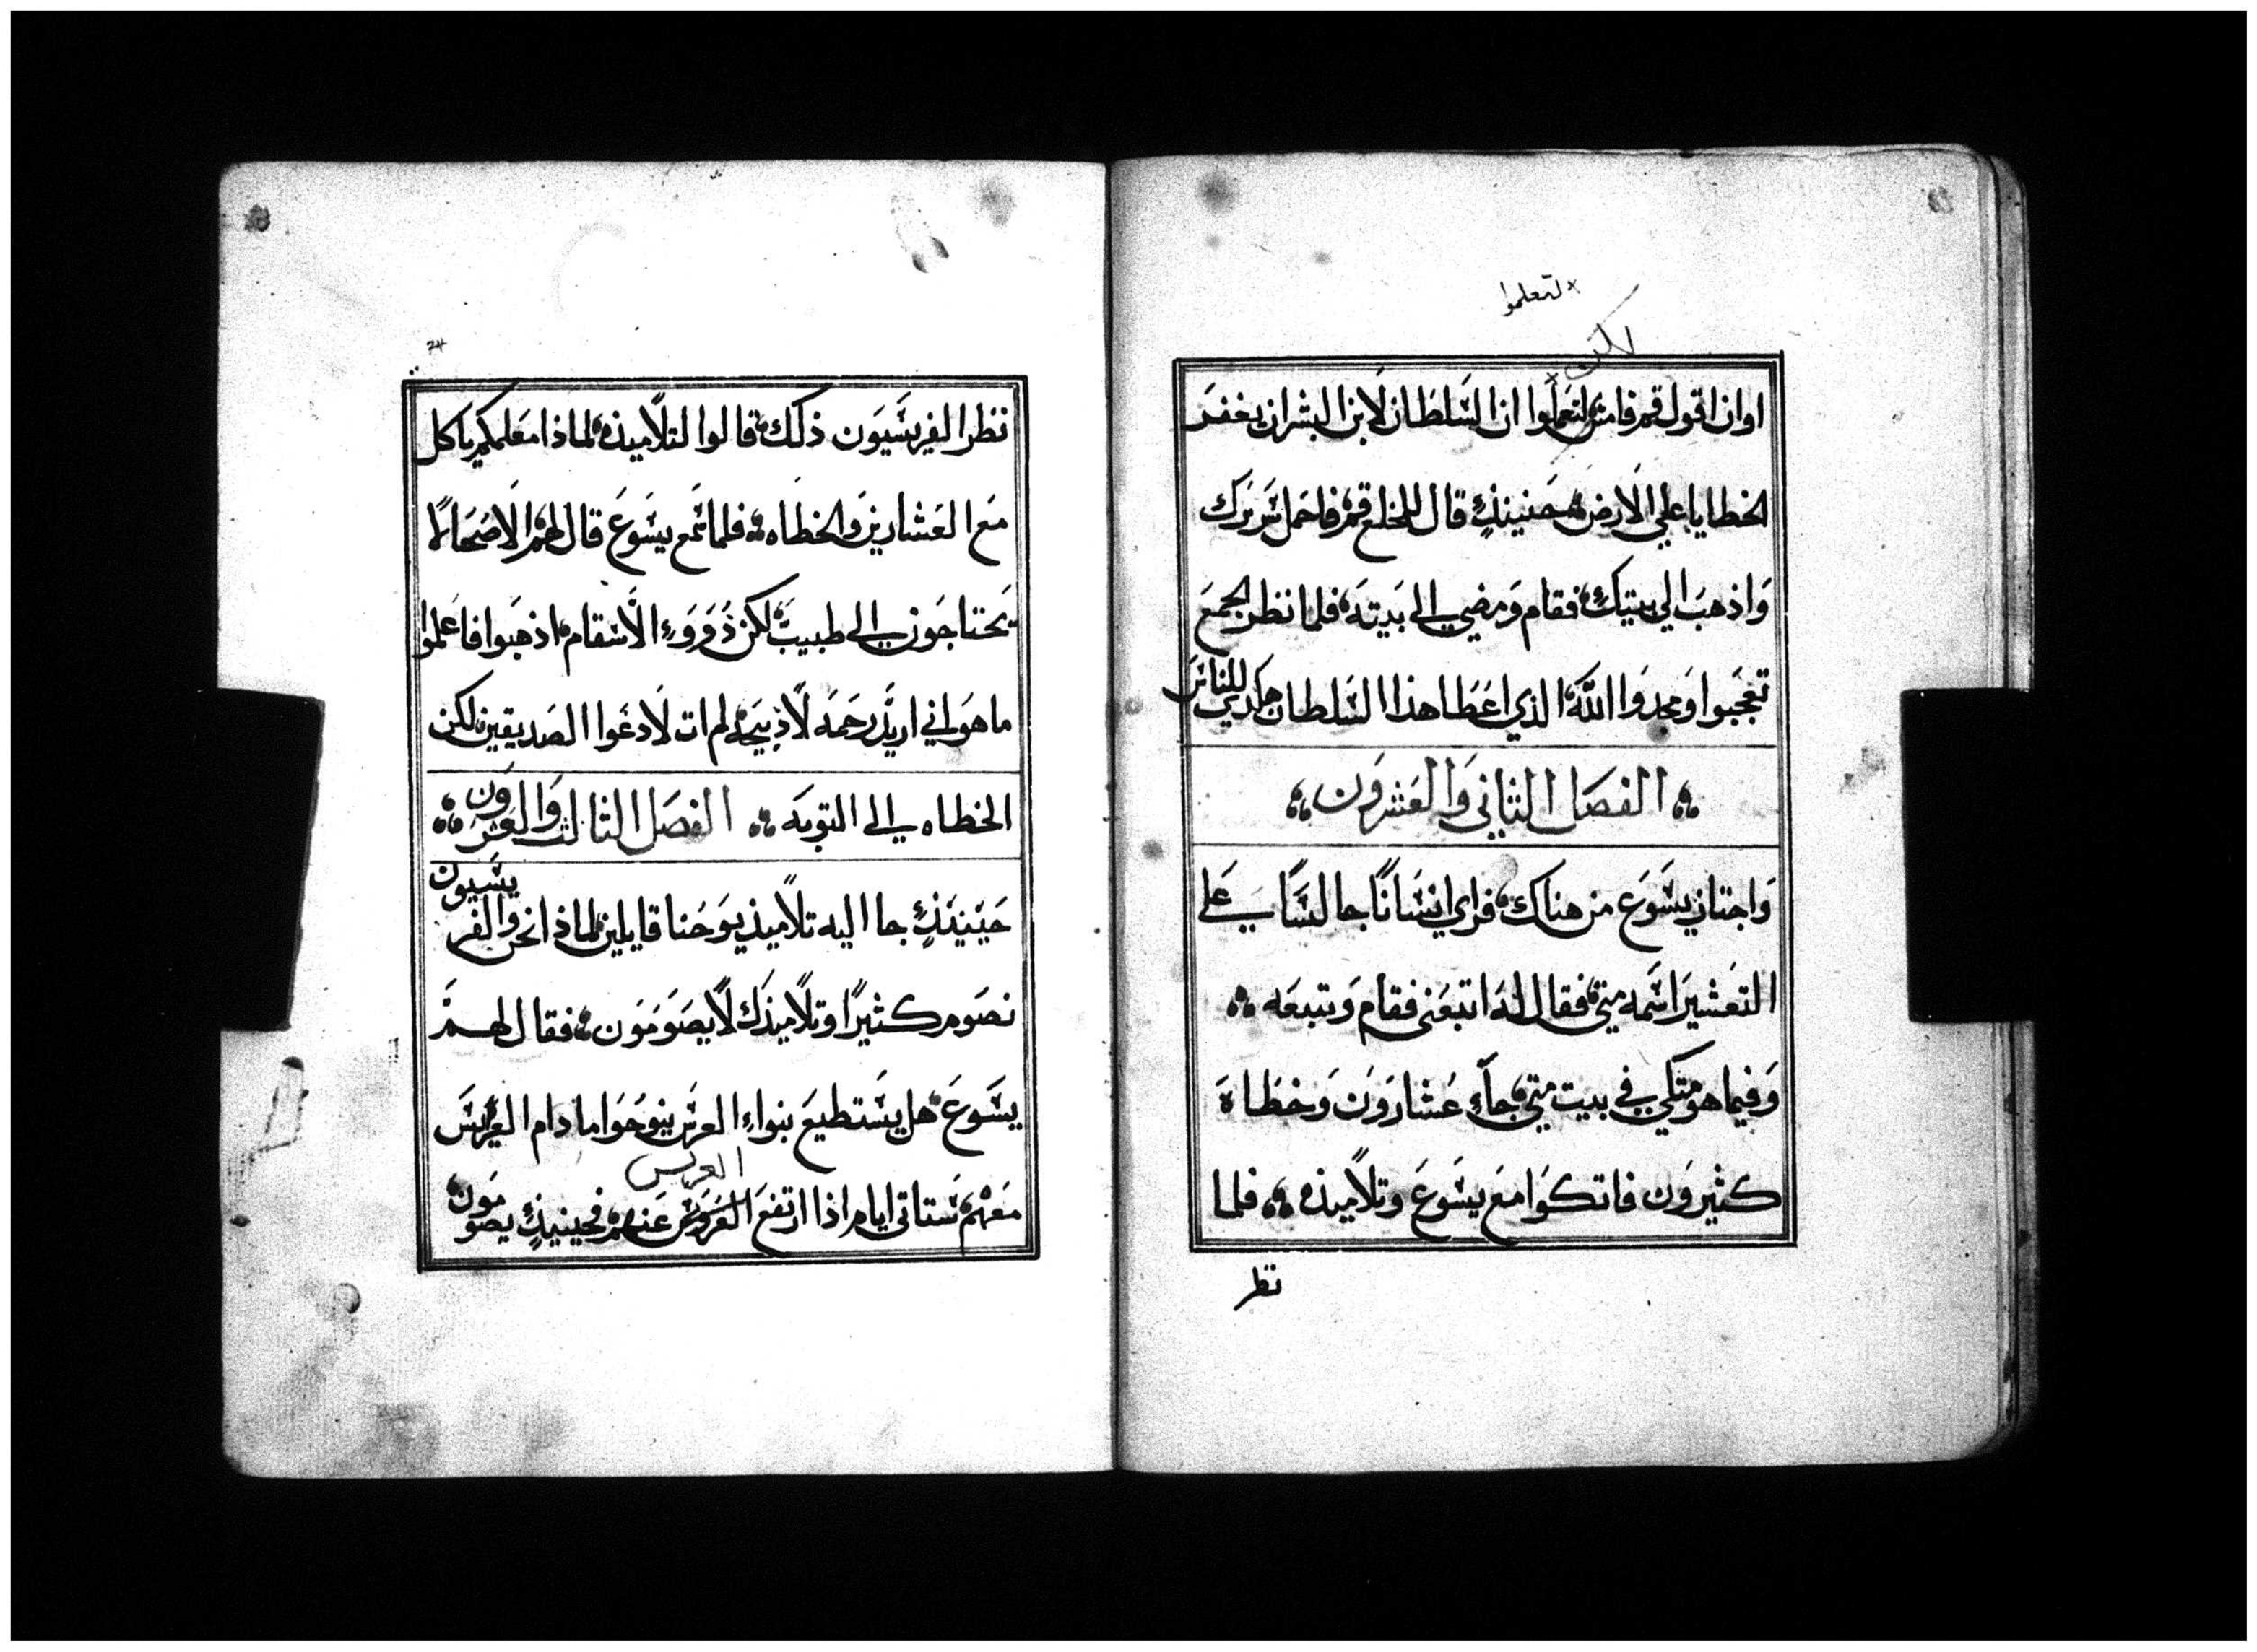 لتعلموا
لكن
اوان اقول قم فامش لتعلموا ان السلطان لابن البشران يغفر
الخطايا علي الارض حينيذٍ قال للمخلع قم فاحمل سريرك
واذهب الي بيتك فقام ومضي الى بيته فلما نظر الجمع
تعجبوا ومجدوا الله الذي اعطا هذا السلطان هكدي للناس
الفصل الثاني والعشرون
واجتاز يسوع من هناك فراي انسانًا جالسًا علي
التعشير اسمه متي فقال له اتبعني فقام وتبعه
وفيما هو متكي في بيت متي جآء عشارون وخطاة
كثيرون فاتكوا مع يسوع وتلاميذه فلما
نظر
24
نظر الفريسيون ذلك قالوا لتلاميذه لماذا معلمكم ياكل
مع العشارين والخطاه فلما سمع يسوع قال لهم الاصحا لا
يحتاجون الى طبيب لكن ذووء الاسقام اذهبوا فاعلموا
ما هو اني اريد رحمه لا ذبيحه لم ات لادعوا الصديقين لكن
الخطاه الى التوبه الفصل الثالث والعشرون
حينيذٍ جا اليه تلاميذ يوحنا قايلين لماذا نحن والفريسيون
نصوم كثيرًا وتلاميذك لا يصومون فقال لهم
يسوع هل يستطيع بنواء العرس ينوحوا ما دام العريس
العريس
معهم ستاتى ايام اذا ارتفع العروس عنهم فحينيذٍ يصومون